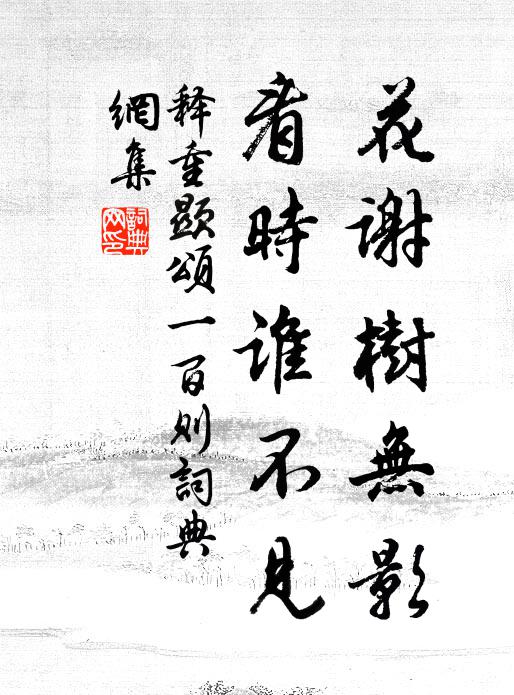 花謝樹無影
看時誰不見
释重顯頌一百则詞典
網集
詞典
网印